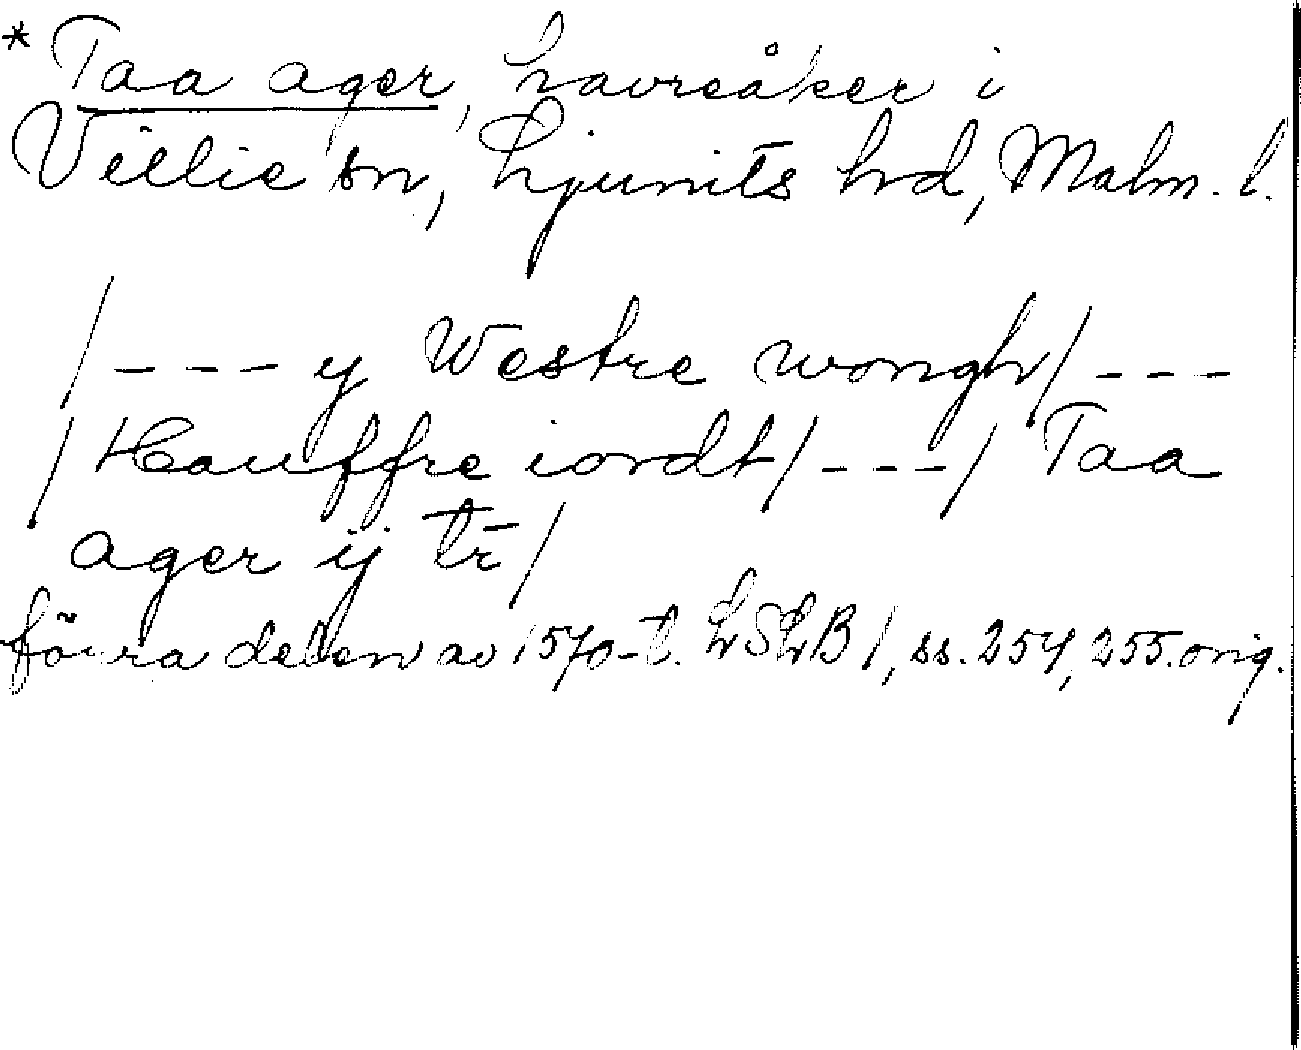 * Taa ager, havreåker i
Villie sn, Ljunits hrd, Malm. l.
/ - - - y Westre wongh/ - - -
/ Hauffre iordt/ - - - / Taa
ager ij tr̄/
förra delen av 1570-t. LSLB 1, ss. 254, 255. orig.